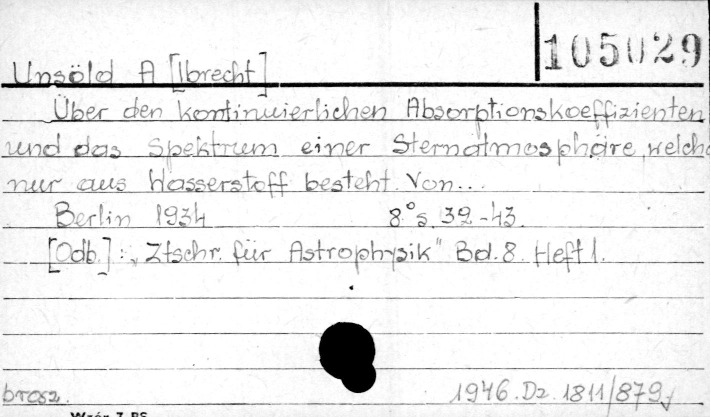 105029
Unsöld A [lbrecht]
Über den kontinuierlichen Absorptionskoeffizienten
und das Spektrum einer Sternatmosphäre, welche
nur aus Wasserstoff besteht. Von...
Berlin 1934 8° s. 32-43.
[Odb.]: „Ztschr. für Astrophysik" Bd. 8. Heft 1.
brosz. 1946. Dz. 1811/879
Wzór 7 BS